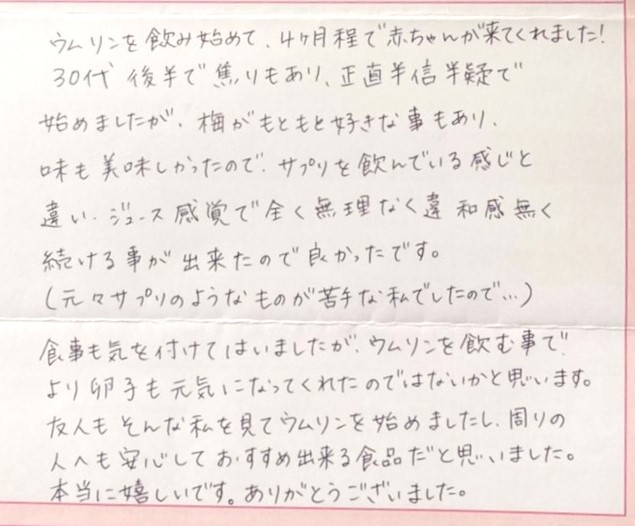 ウムリンを飲み始めて、4ヶ月程で赤ちゃんが来てくれました!
30代 後半で焦りもあり、正直半信半疑で
始めましたが、梅がもともと好きな事もあり、
味も美味しかったので、サプリを飲んでいる感じと
違い、ジュース感覚で全く無理なく違和感無く
続ける事が出来たので良かったです。
(元々サプリのようなものが苦手な私でしたので…)
食事も気を付けてはいましたが、ウムリンを飲む事で、
より卵子も元気になってくれたのではないかと思います。
友人もそんな私を見てウムリンを始めましたし、周りの
人へも安心しておすすめ出来る食品だと思いました。
本当に嬉しいです。ありがとうございました。